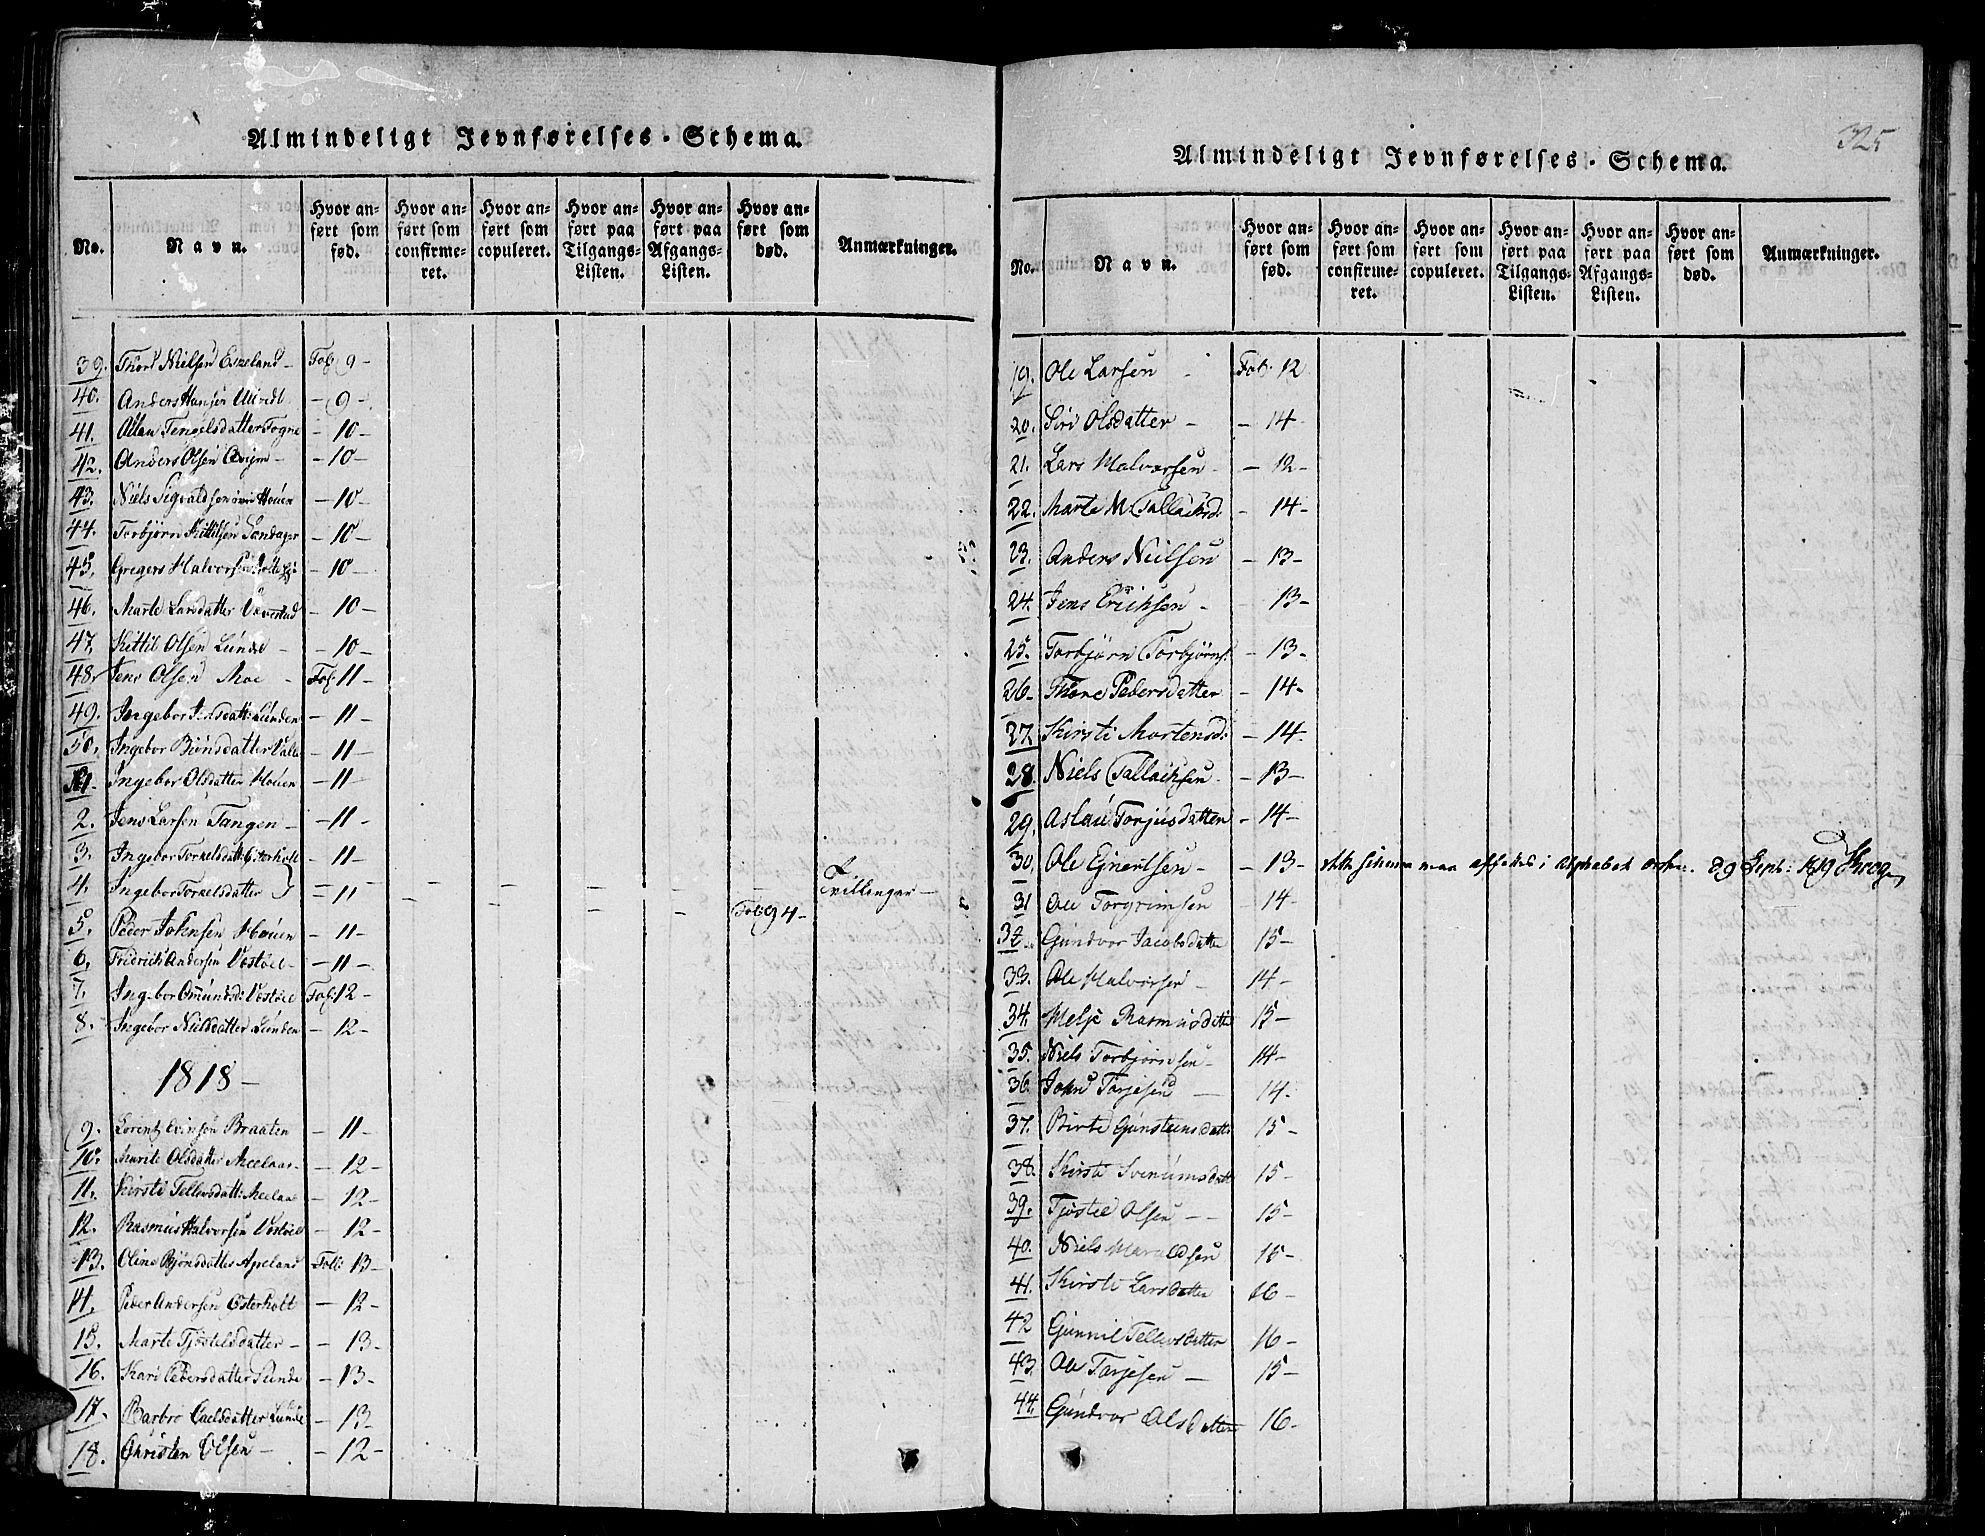 Almindeligt Jevnførelses-Schema.
No. Navn. Hvor anført som fød. Hvor anført som confirmeret. Hvor anført som copuleret. Hvor anført paa Tilgangs-Listen. Hvor anført paa Afgangs-Listen. Hvor anført som død. Anmærkninger.
39. Thord Nielsen Eszeland - Fol: 9 -
40. Anders Hansen - 9 -
41. Tengelsdatter Togne - 10 -
42. Anders Olsen - 10 -
43. Niels Sigvaldsen Houen - 10 -
44. Torbjørn Kittilsen Landager - 10 -
45. Gregers Halvorsen - 10 -
46. Marte Larsdatter - 10 -
47. Kittil Olsen Lunde - 10 -
48. Jens Olsen Moe - Fol: 11 -
49. Ingebor Lunden - 11 -
50. Ingebor Biönsdatter - 11 -
Ingebor Olsdatter Houen - 11 -
2. Jens Larsen Tangen - - 11 -
3. Ingebor Torkelsdatt: Østerholt - 11 -
4. Ingebor Torkelsdatter - 11 - Tvillinger -
5. Peder Johnsen Houen - 11 - Fol: 94 -
6. Fridrich Andersen Vostöel - - 11 -
7. Ingebor Omundsd: Vostöel Fol: 12 -
8. Ingebor Nielsdatter Lunden - 12 -
1818 -
9. Lorentz Evensen Braaten - 11 -
10. Marite Olsdatter Meelaas - - 12 -
11. Kirsti Tellevsdatt: Meelaas - 12 -
12. Rasmus Halvorsen Vostöel - 12 -
13. Oline Bjönsdatter Apeland Foll: 13 -
14. Peder Andersen Østerholt - 12 -
15. Marte Tjöstelsdatter - - 13 -
16. Kari Pedersdatter Lunde - 13 -
17. Barbro Lunde - 13 -
18. Christen Olsen - - 12 -
325
Almindeligt Jevnførelses-Schema.
No. Navn. Hvor anført som fød. Hvor anført som confirmeret. Hvor anført som copuleret. Hvor anført paa Tilgangs-Listen. Hvor anført paa Afgangs-Listen. Hvor anført som død. Anmærkninger.
19. Ole Larsen - Fol: 12
20. Siri Olsdatter - - 14 -
21. Lars Halvorsen - - 12 -
22. Marte M. Tallachsd: - 14 -
23. Anders Nielsen - 13 -
24. Jens Ericksen - 13 -
25. Torbjørn Torbjørns: - 13 -
26. Thore Pedersdatter - 14 -
27. Kirsti Mortensd: - 14 -
28. Niels Tallachsen - - 13 -
29. Aslau Torjusdatter - 14 -
30. Ole Ejnertsen - - 13 - schema maa i Alphabet 29 Sept: 1819 Krog
31 Ole Torgrimsen - 14 -
32. Gundvor Jacobsdatter 15 -
33. Ole Halvorsen - 14 -
34. Helje Rasmusdatter 15 -
35. Niels Torbjörnsen - 14 -
36. John Tarjesen - 14 -
37. Birte Gunsteensdatt: 15 -
38. Kirsti Svenumsdatt 15 -
39. Tjöstel Olsen - - 15 -
40. Niels Haraldsen 15 -
41. Kirsti Larsdatter 16 -
42 Gunnil Tellevsdatter 16 -
43. Ole Tarjesen - 15 -
44. Gundvor Olsdatter 16 -